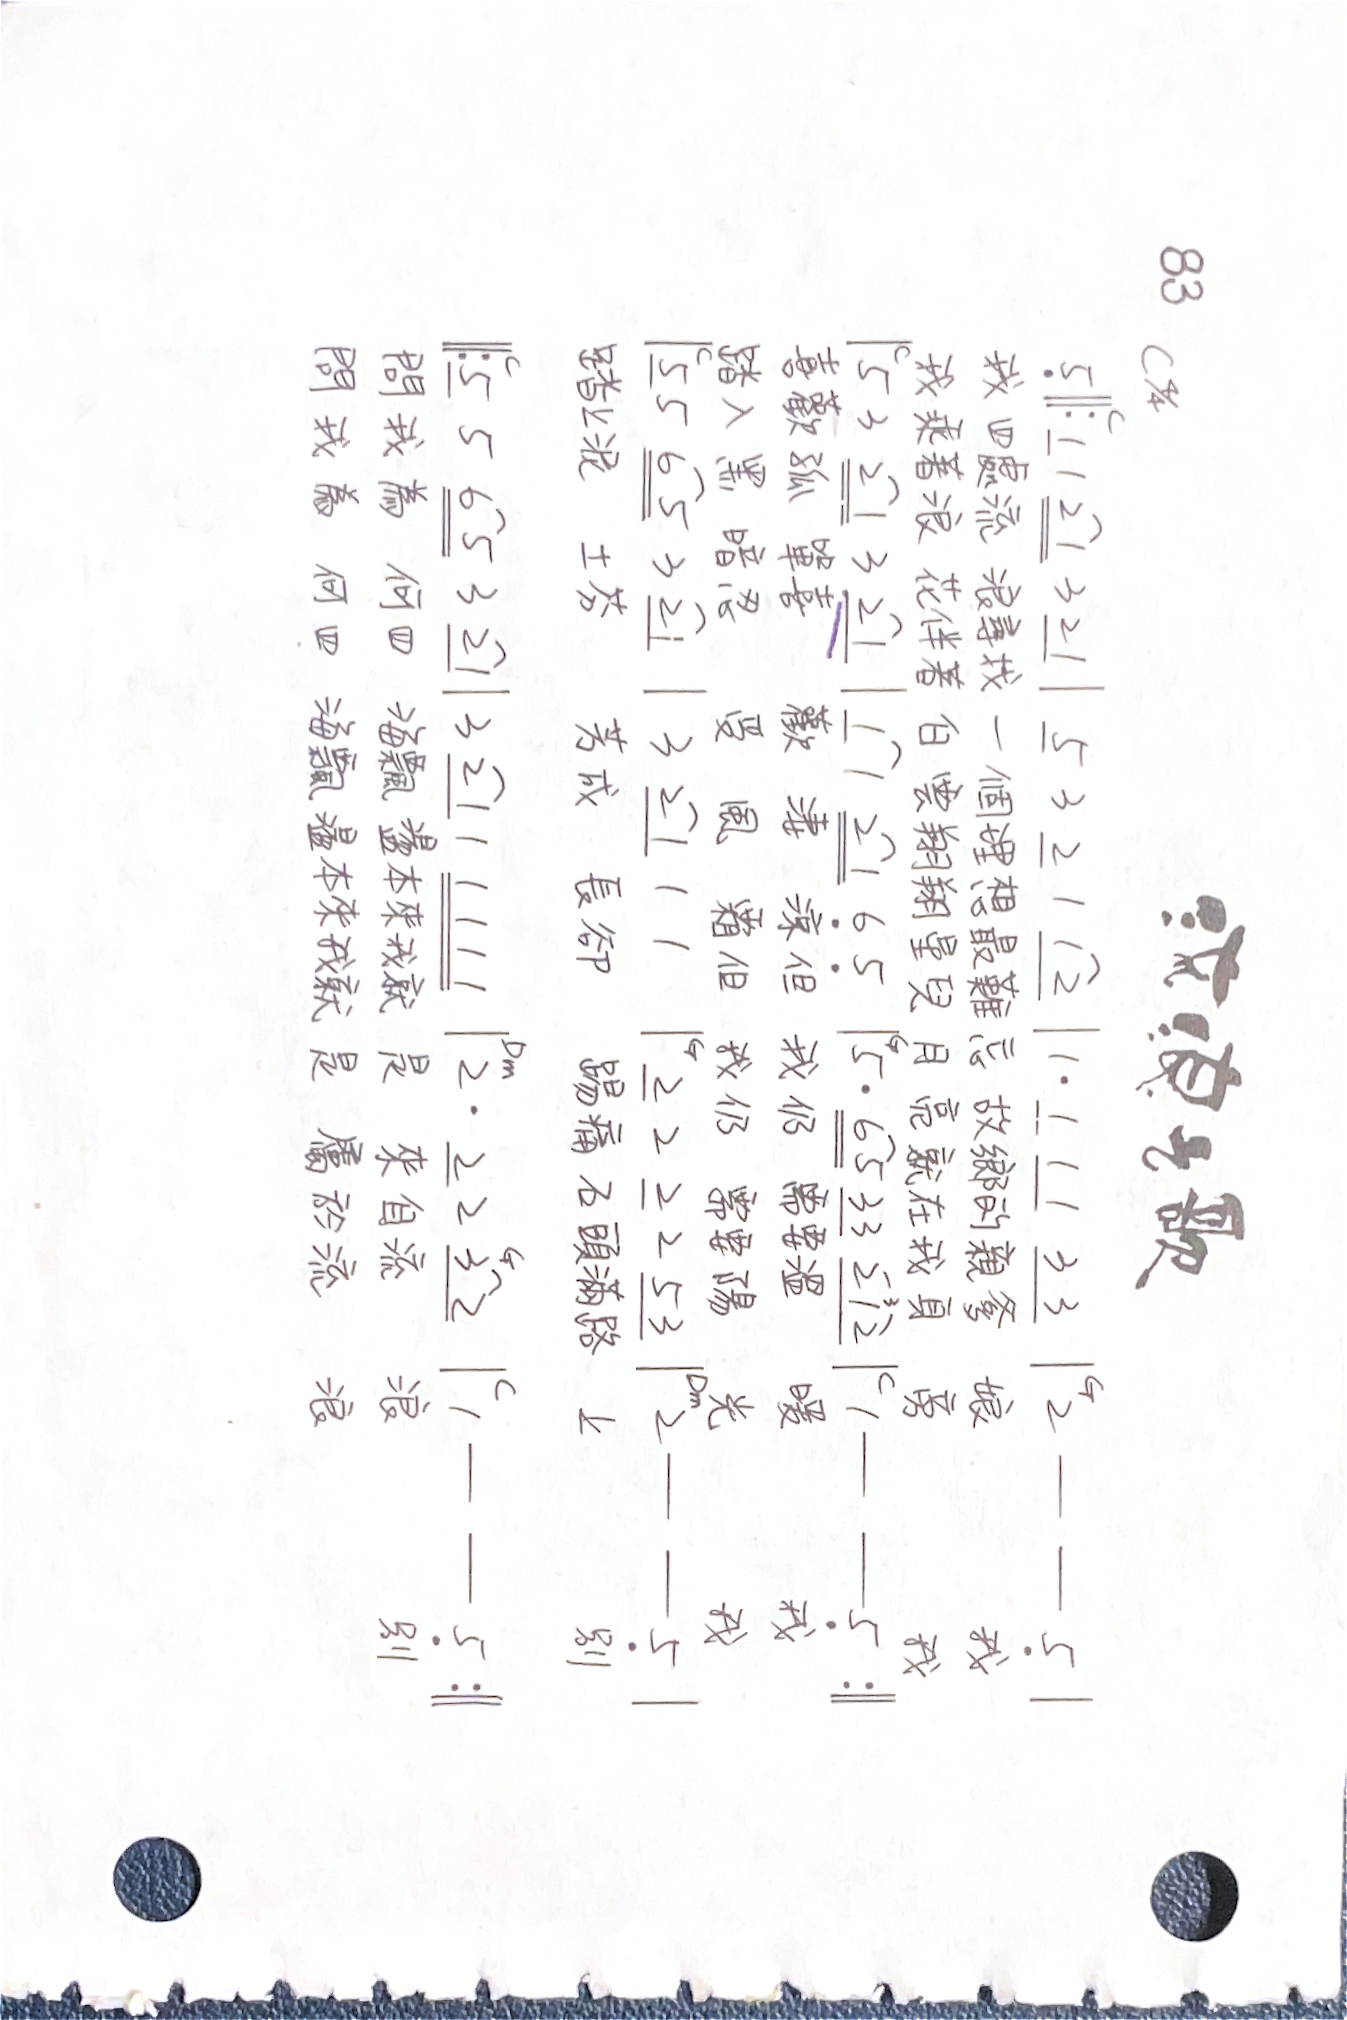 流浪之歌
83
C 4/4
C
5 ‖: 1 1 2 1 3 2 1 | 5 3 2 1 1 2 | 1 · 1 1 1 3 3 | G 2 — — 5 |
我四處流浪尋找一個理想最難忘故鄉的親爹娘 我
我乘著浪花伴著白雲翔翔星兒月亮就在我身旁 我
| C 5 3 2 1 3 2 1 | 1 1 2 1 6 5 | G 5 · 6 5 3 3 2 1 2 3 | C 1 — — 5 :‖
喜歡孤單喜歡淒涼但我仍需要溫暖 我
踏入黑暗忍受風霜但我仍需要陽光 我
| C 5 5 6 5 3 2 1 | 3 2 1 1 1 | G 2 2 2 2 5 3 | Dm 2 — — 5 |
踏上泥土芬芳成長卻踢痛石頭滿路上 別
‖: C 5 5 6 5 3 2 1 | 3 2 1 1 1 1 1 1 | Dm 2 · 2 2 G 3 2 | C 1 — — 5 :‖
問我為何四海飄盪本來我就是來自流浪 別
問我為何四海飄盪本來我就是屬於流浪